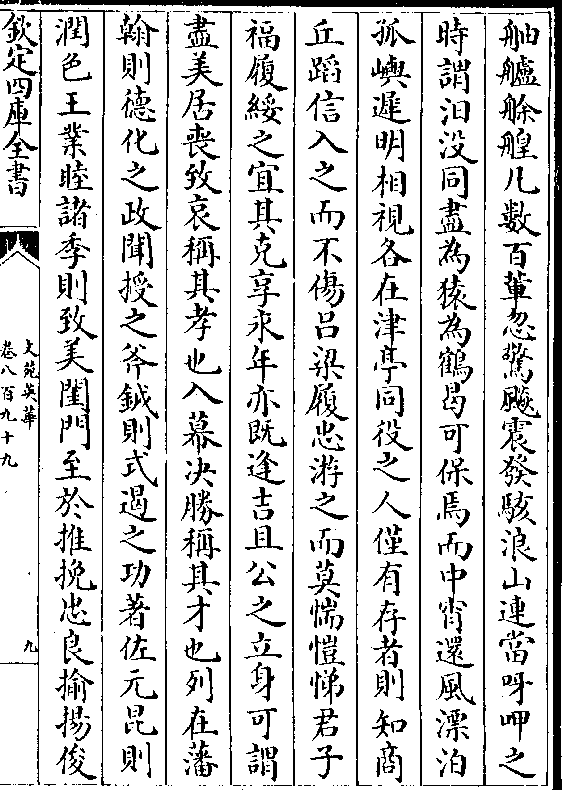 舳艫艅艎凡數百軰忽驚飈震發駭浪山連當呀呷之
時謂汨没同盡為猿為鶴曷可保焉而中宵還風漂泊
孤嶼遲明相視各在津亭同役之人僅有存者則知商
丘蹈信入之而不傷吕梁履忠游之而莫惴愷悌君子
福履綏之宜其克享永年亦既逢吉且公之立身可謂
盡美居喪致哀稱其孝也入幕决勝稱其才也列在藩
翰則德化之政聞授之斧鉞則式遏之功著佐元昆則
潤色王業睦諸季則致美閨門至於推挽忠良揄揚俊
欽定四庫全書
文苑英華
卷八百九十九
九